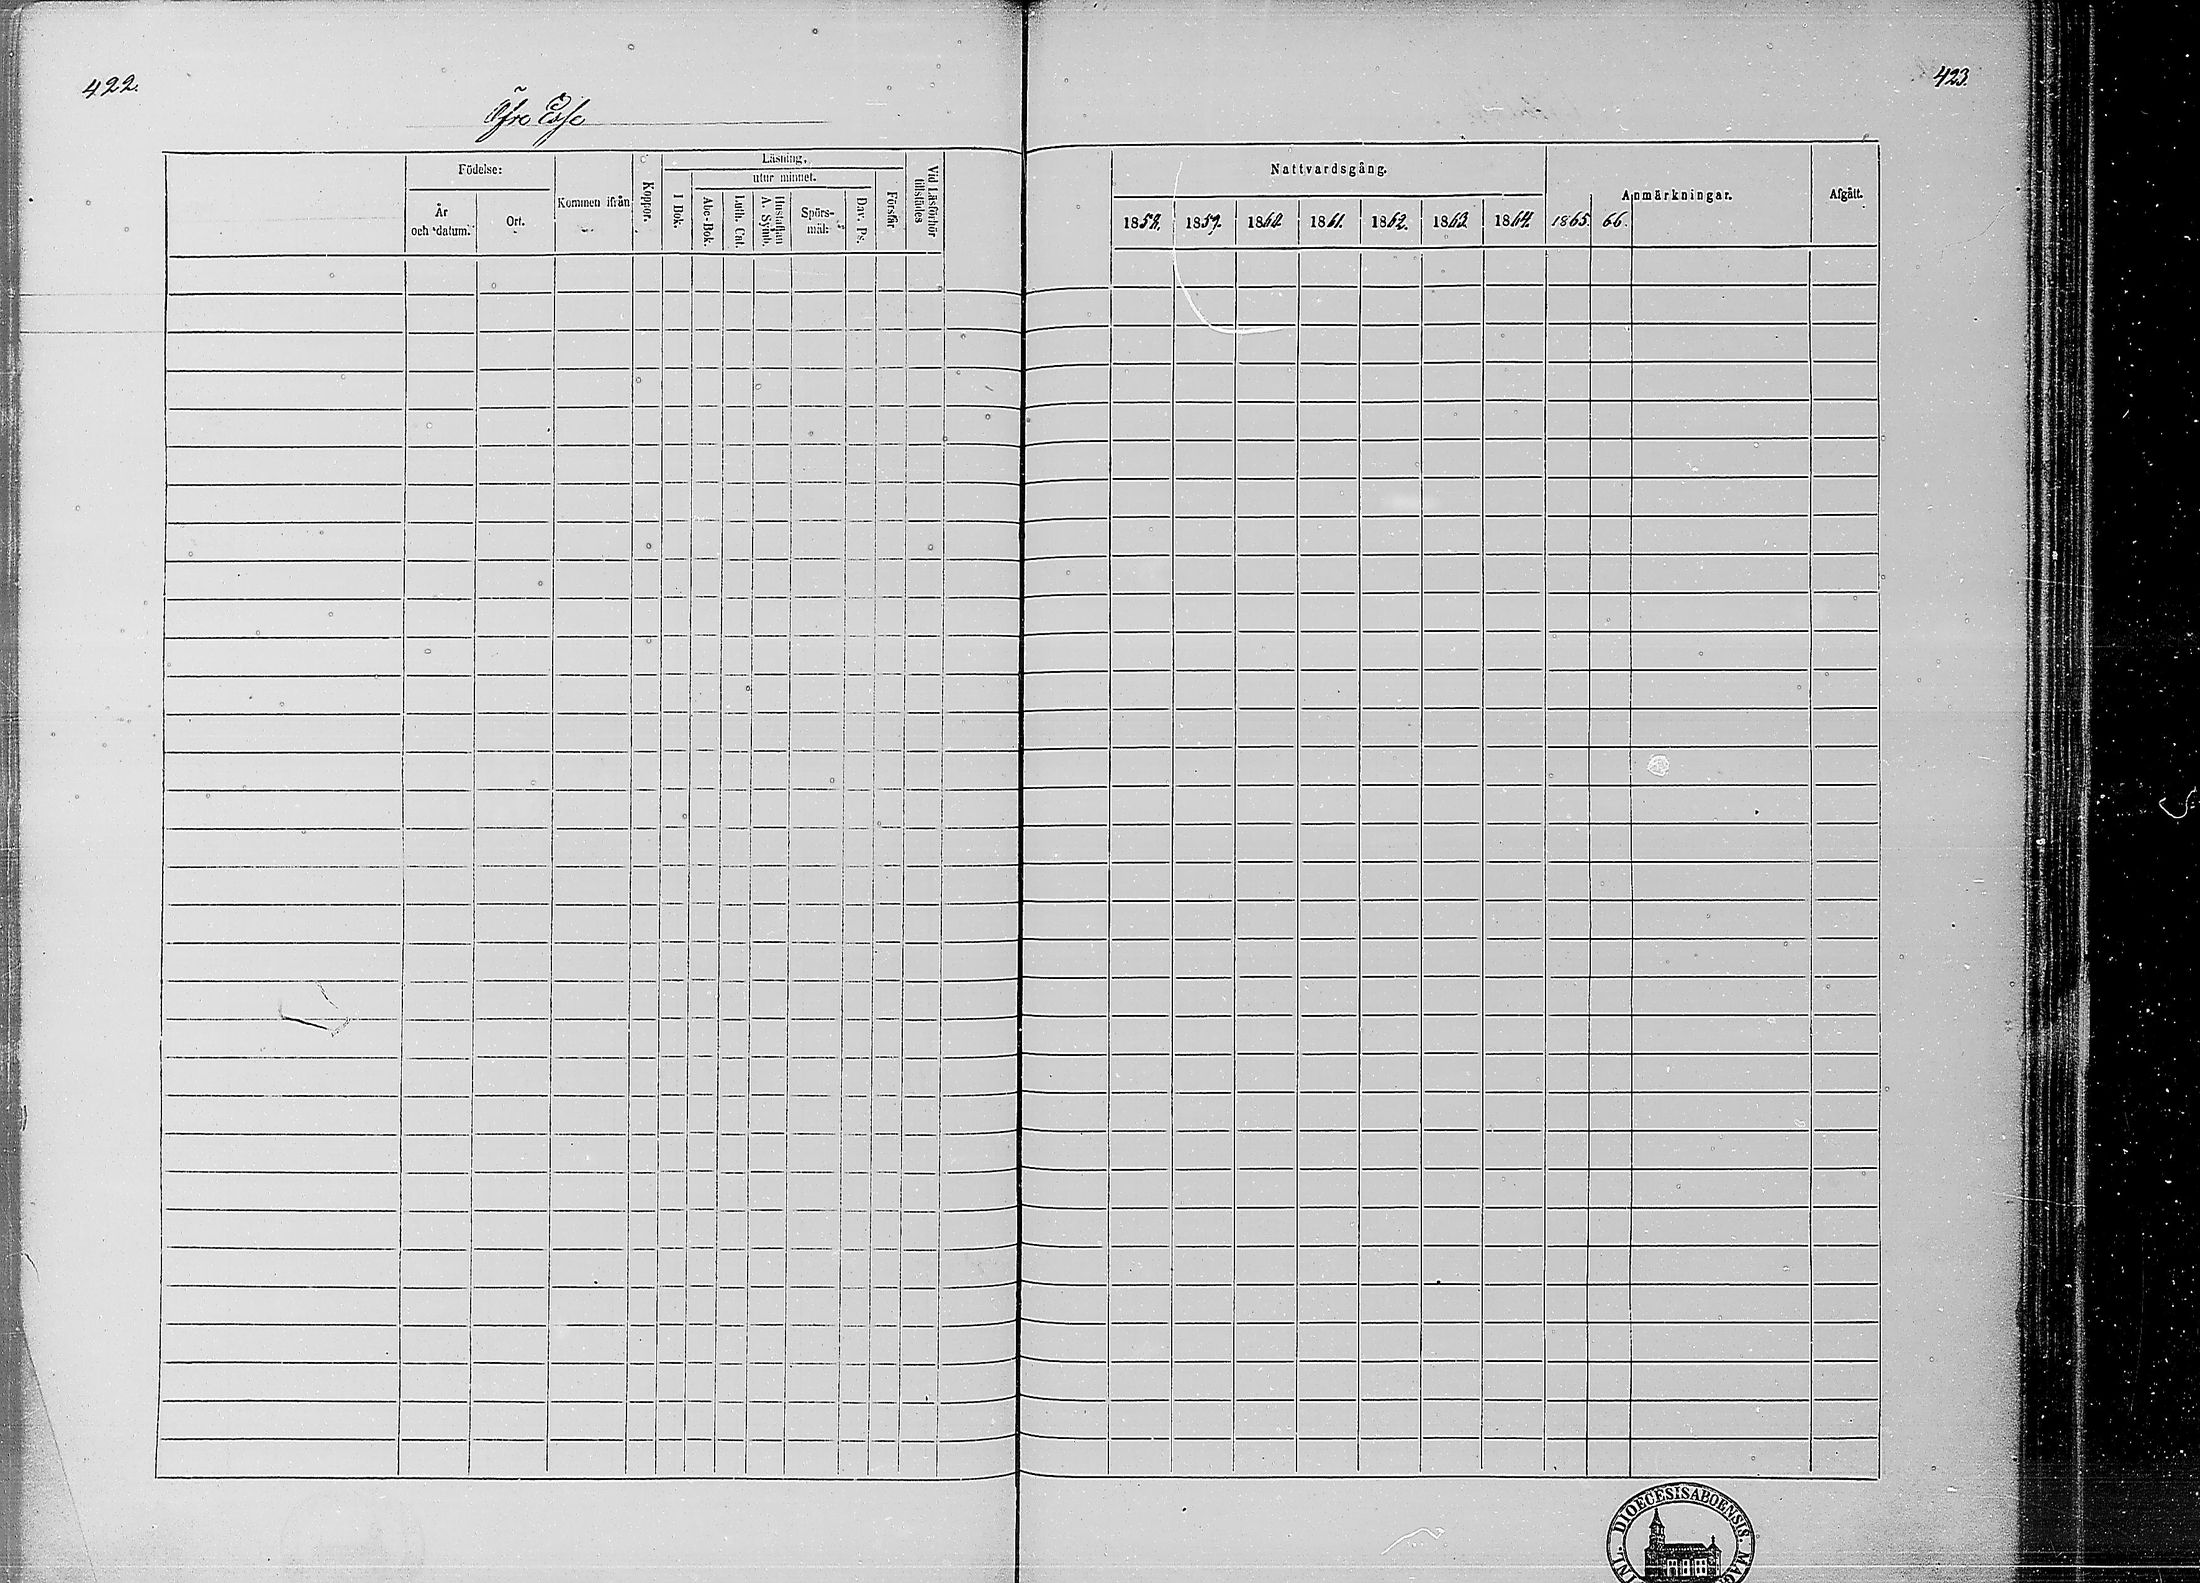 422.
423.
Öfre Esse
Födelse:
År och datum.
Ort.
Kommen ifrån
Koppor.
Läsning,
I Bok.
utur minnet.
Abc-Bok.
Luth. Cat.
Hustaflan A. Symb.
Spörs-mål:
Dav. Ps.
Förstår
Vid Läsförhör tillstädes
Nattvardsgång.
1858. 1859. 1860. 1861. 1862. 1863. 1864. 1865. 66.
Anmärkningar.
Afgått.
DIOECESIS ABOENSIS. MAG